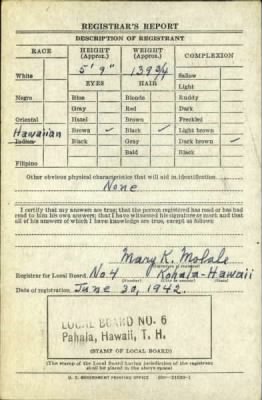 REGISTRAR'S REPORT
DESCRIPTION OF REGISTRANT
RACE HEIGHT (Approx.) WEIGHT (Approx.) COMPLEXION
White 5' 9" 139 3/4 Sallow
EYES HAIR Light
Negro Blue Blonde Ruddy
Gray Red Dark
Oriental Hazel Brown Freckled
Hawaiian Brown ✓ Black ✓ Light brown
Indian Black Gray Dark brown ✓
Bald Black
Filipino
Other obvious physical characteristics that will aid in identification
None
I certify that my answers are true; that the person registered has read or has had
read to him his own answers; that I have witnessed his signature or mark and that
all of his answers of which I have knowledge are true, except as follows:
Mary K.
Registrar for Local Board No. 4 Kohala-Hawaii
Date of registration June 20, 1942.
LOCAL BOARD NO. 6
Pahala, Hawaii, T. H.
(STAMP OF LOCAL BOARD)
(The stamp of the Local Board having jurisdiction of the registrant
shall be placed in the above space)
U. S. GOVERNMENT PRINTING OFFICE